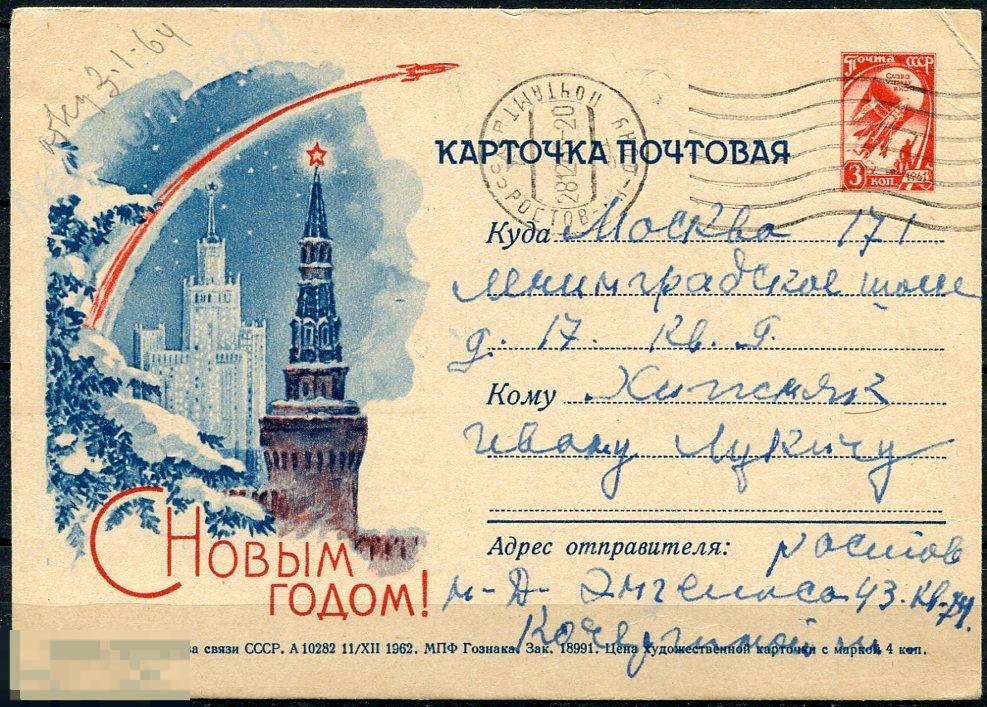 3.1-64
Почта СССР
3 коп. 1961
СССР ПОЧТАМТ
28 12 -20
РОСТОВ-Н-ДНУ
КАРТОЧКА ПОЧТОВАЯ
Куда Москва 171
Ленинградское шоссе
д. 17. Кв. 8.
Кому
Ивану Лукичу
Адрес отправителя: Ростов
н-Д- Энгельса 43. кв-74.
С Новым
годом!
связи СССР. А 10282 11/XII 1962. МПФ Гознака. Зак. 18991. Цена художественной карточки с маркой 4 коп.